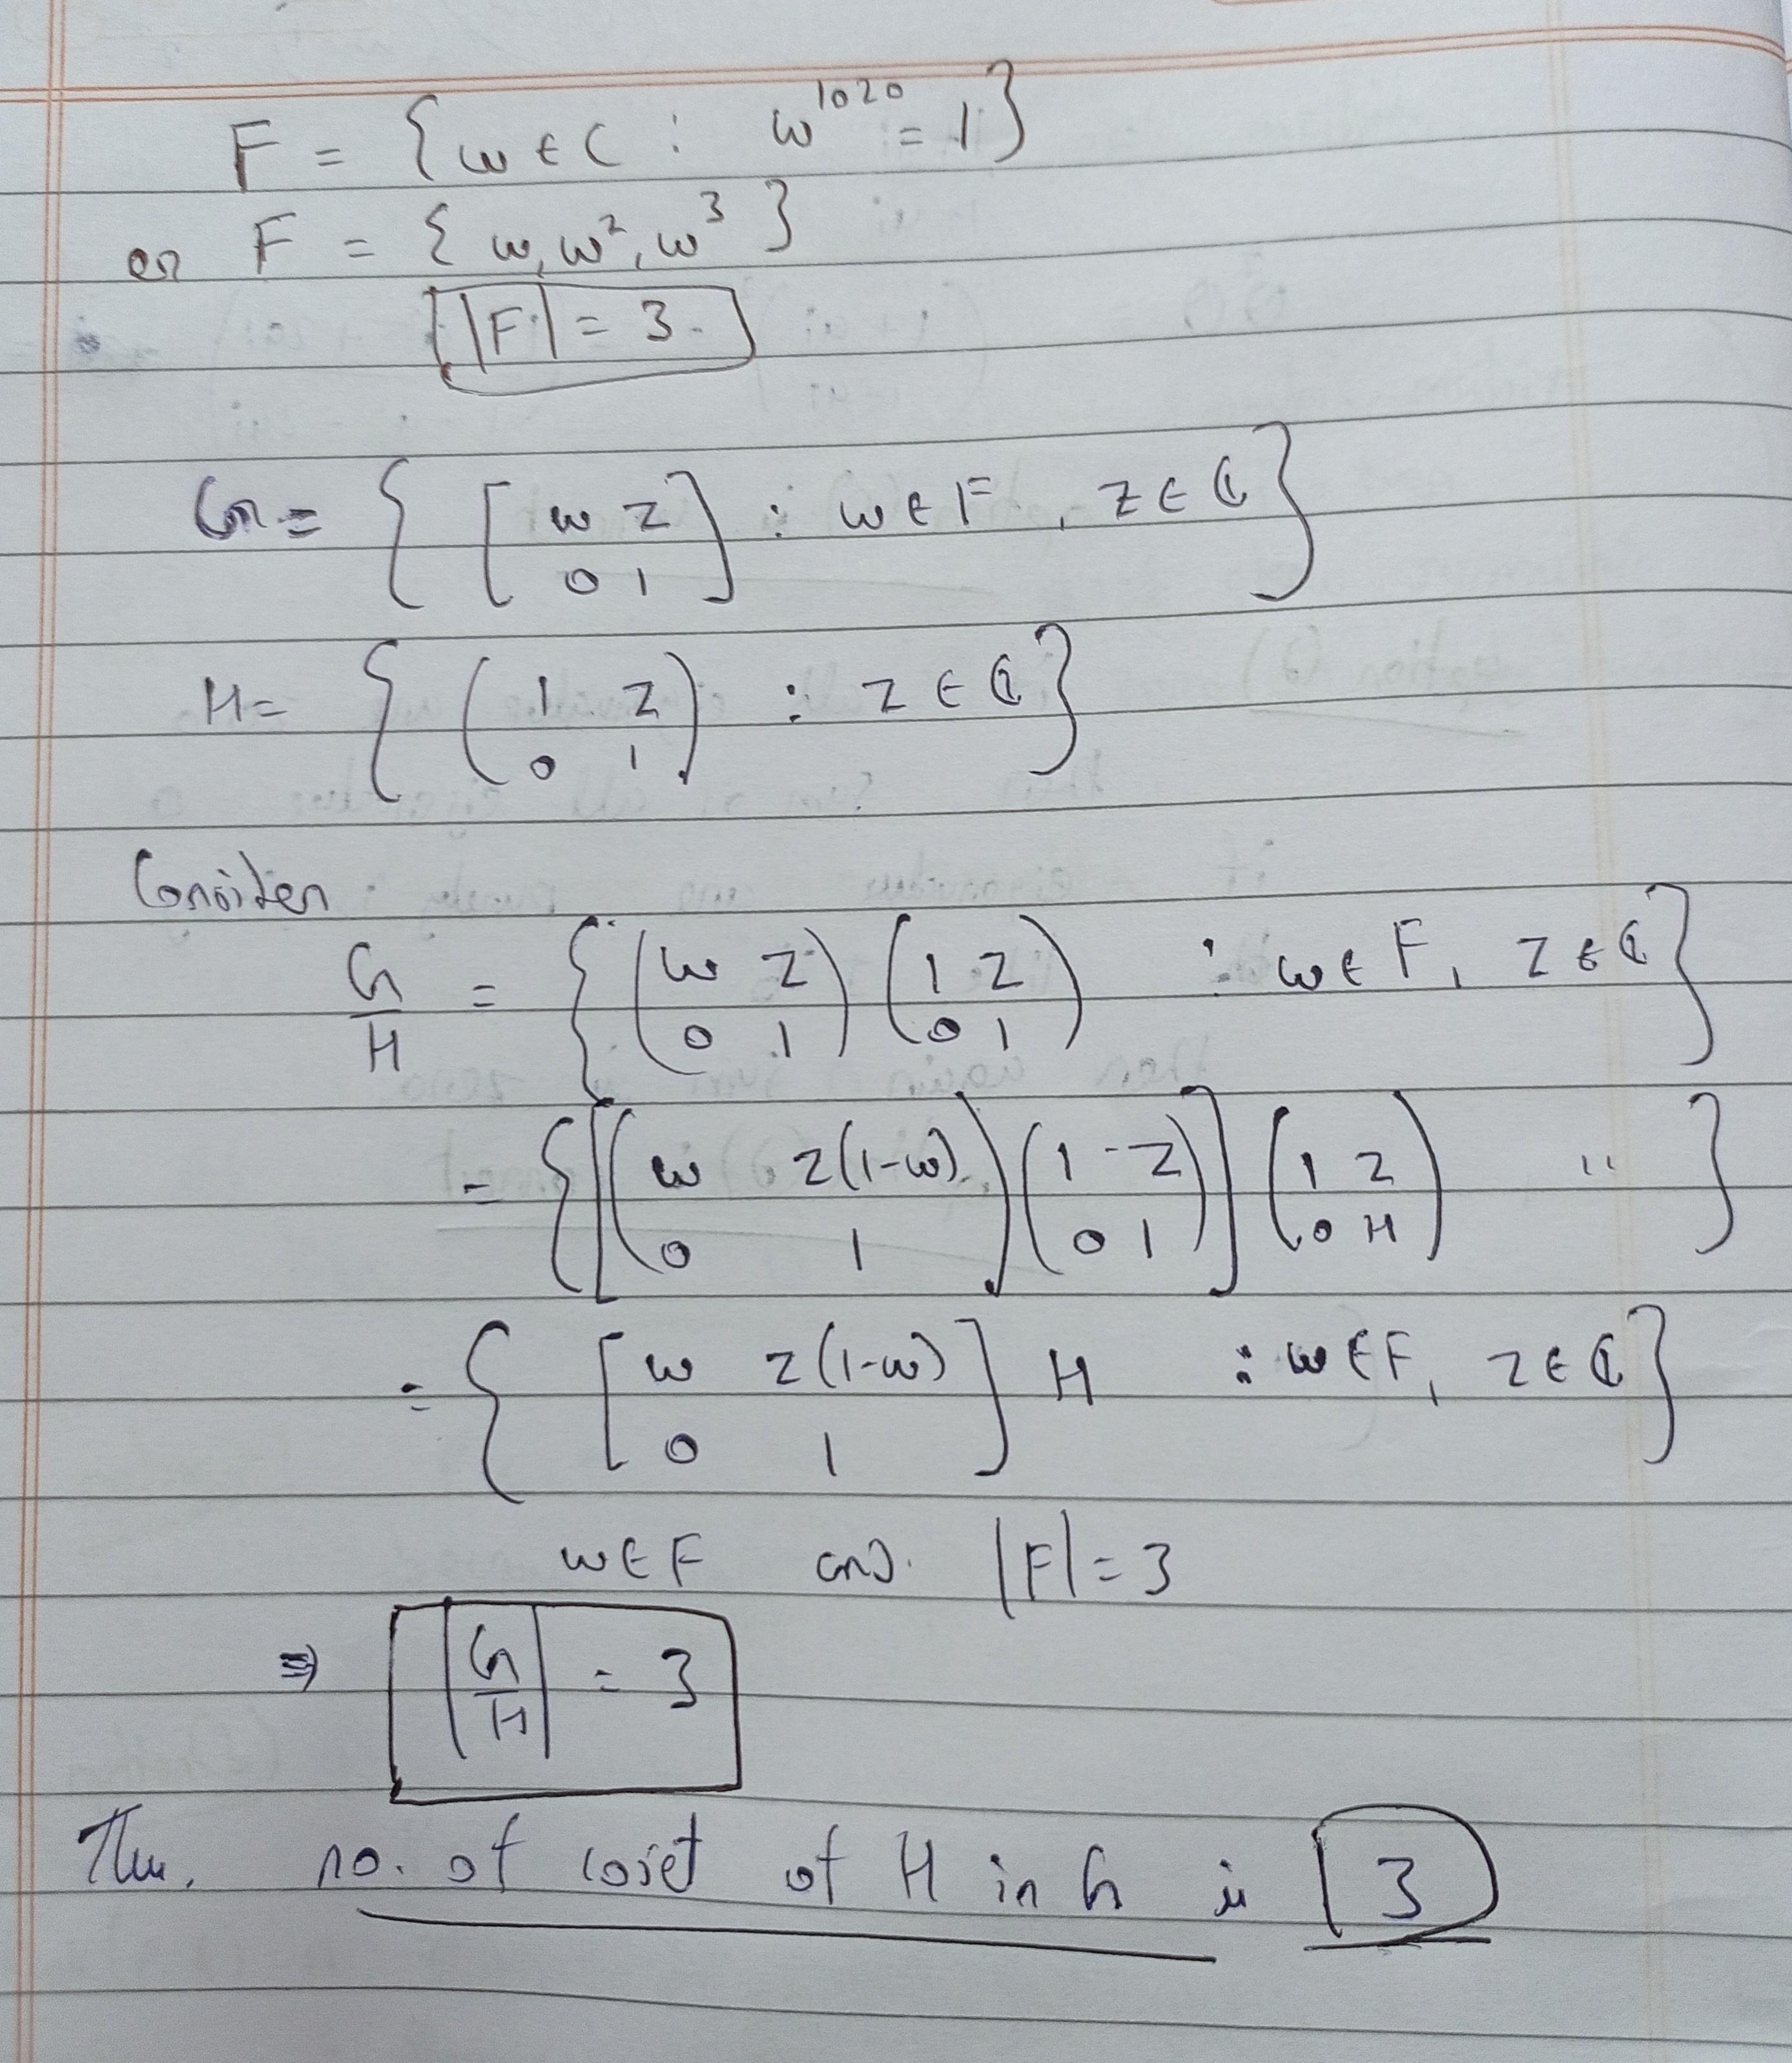 F = { ω ∈ C : ω^1020 = 1 }
or F = { ω, ω², ω³ }
|F| = 3.
G = { [ ω z ; 0 1 ] : ω ∈ F, z ∈ ℂ }
H = { ( 1 z ; 0 1 ) : z ∈ ℂ }
Consider
G/H = { ( ω z ; 0 1 ) ( 1 z ; 0 1 ) : ω ∈ F, z ∈ ℂ }
= { [ ( ω z(1-ω) ; 0 1 ) ( 1 -z ; 0 1 ) ] ( 1 z ; 0 H ) '' }
= { [ ω z(1-ω) ; 0 1 ] H : ω ∈ F, z ∈ ℂ }
ω ∈ F and. |F| = 3
⇒ |G/H| = 3
Thu. no. of coset of H in G is 3